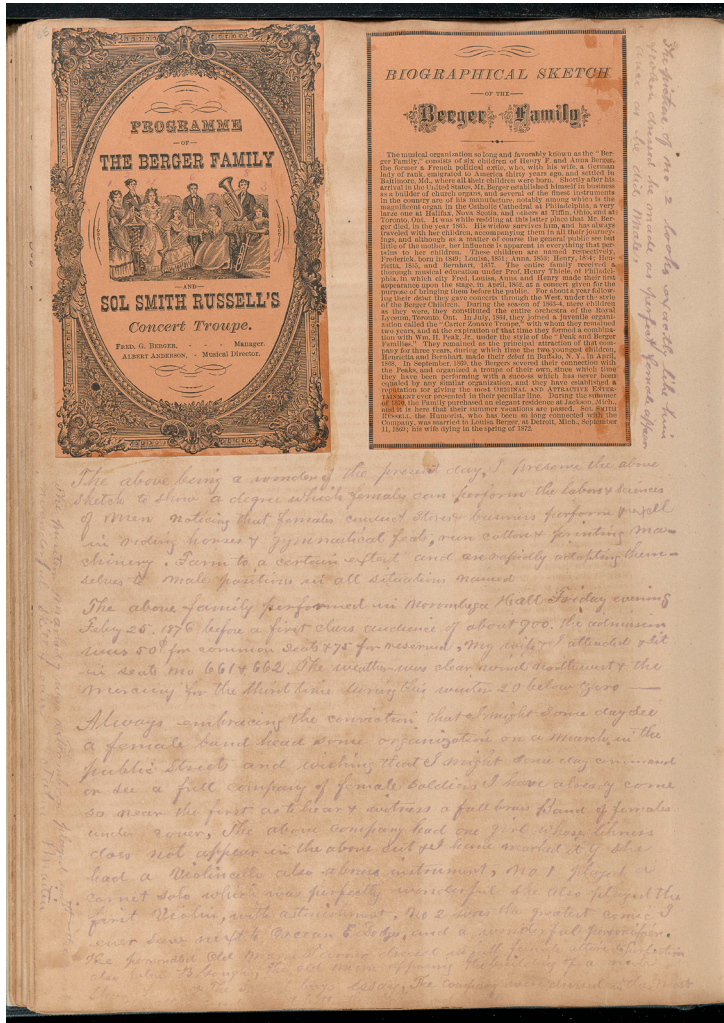 PROGRAMME
—OF—
THE BERGER FAMILY
—AND—
SOL SMITH RUSSELL'S
Concert Troupe.
FRED. G. BERGER, - - - - Manager.
ALBERT ANDERSON, - Musical Director.
BIOGRAPHICAL SKETCH
—OF THE—
Berger Family
The musical organization so long and favorably known as the "Ber-
ger Family," consists of six children of Henry F. and Anna Berger,
the former a French political exile, who, with his wife, a German
lady of rank, emigrated to America thirty years ago, and settled in
Baltimore, Md., where all their children were born. Shortly after his
arrival in the United States, Mr. Berger established himself in business
as a builder of church organs, and several of the finest instruments
in the country are of his manufacture, notably among which is the
magnificent organ in the Catholic Cathedral at Philadelphia; a very
large one at Halifax, Nova Scotia, and others at Tiffin, Ohio, and at
Toronto, Ont. It was while residing at this latter place that Mr. Ber-
ger died, in the year 1865. His widow survives him, and has always
traveled with her children, accompanying them in all their journey-
ings, and although as a matter of course the general public see but
little of the mother, her influence is apparent in everything that per-
tains to her children. These children are named respectively,
Frederick, born in 1849; Louisa, 1851; Anna, 1853; Henry, 1854; Hen-
rietta, 1855, and Bernhart, 1857. The entire family received a
thorough musical education under Prof. Henry Thiele, of Philadel-
phia, in which city Fred, Louisa, Anna and Henry made their first
appearance upon the stage, in April, 1862, at a concert given for the
purpose of bringing them before the public. For about a year follow-
ing their debut they gave concerts through the West, under the style
of the Berger Children. During the season of 1863-4, mere children
as they were, they constituted the entire orchestra of the Royal
Lyceum, Toronto, Ont. In July, 1864, they joined a juvenile organi-
zation called the "Carter Zouave Troupe," with whom they remained
two years, and at the expiration of that time they formed a combina-
tion with Wm. H. Peak, Jr., under the style of the "Peak and Berger
Families." They remained as the principal attraction of that com-
pany for three years, during which time the two youngest children,
Henrietta and Bernhart, made their debut in Buffalo, N. Y., in April,
1868. In September, 1869, the Bergers severed their connection with
the Peaks, and organized a troupe of their own, since which time
they have been performing with a success which has never been
equaled by any similar organization, and they have established a
reputation for giving the most ORIGINAL AND ATTRACTIVE ENTER-
TAINMENT ever presented in their peculiar line. During the summer
of 1870, the Family purchased an elegant residence at Jackson, Mich.,
and it is here that their summer vacations are passed. SOL SMITH
RUSSELL, the Humorist, who has been so long connected with the
Company, was married to Louisa Berger, at Detroit, Mich., September
11, 1869; his wife dying in the spring of 1872.
The picture of no 2 looks exactly like him
& when dressed he made as perfect female appear
ance as he did Male.
The above being a wonder of the present day, I preserve the above
sketch to show a degree which females can perform the labors & sciences
of Men noticing that females conduct stores & business perform well
in riding horses & gymnastical feats, run cotton & printing ma-
chinery. Farm to a certain extent and are rapidly adapting them-
selves to male positions in all situations named
The above family performed in Norombega Hall Friday evening
Feby 25. 1876 before a first class audience of about 900. The admission
was 50¢ for common seats & 75 for reserved, My wife & I attended & sit
in seats no 661 & 662. The weather was clear wind northwest & the
mercury for the third time during this winter 20 below Zero —
Always embracing the conviction that I might some day see
a female band head some organization on a march in the
public streets and wishing that I might some day command
or see a full company of female soldiers I have already come
so near the first as to hear & witness a full brass band of females
under cover, The above company had one girl whose likeness
does not appear in the above
had a Violincello also a brass instrument, No 1 played a
cornet solo which was perfectly wonderful she also played the
first Violin, with astonishment, No 2 was the greatest comic I
ever saw next to and a wonderful